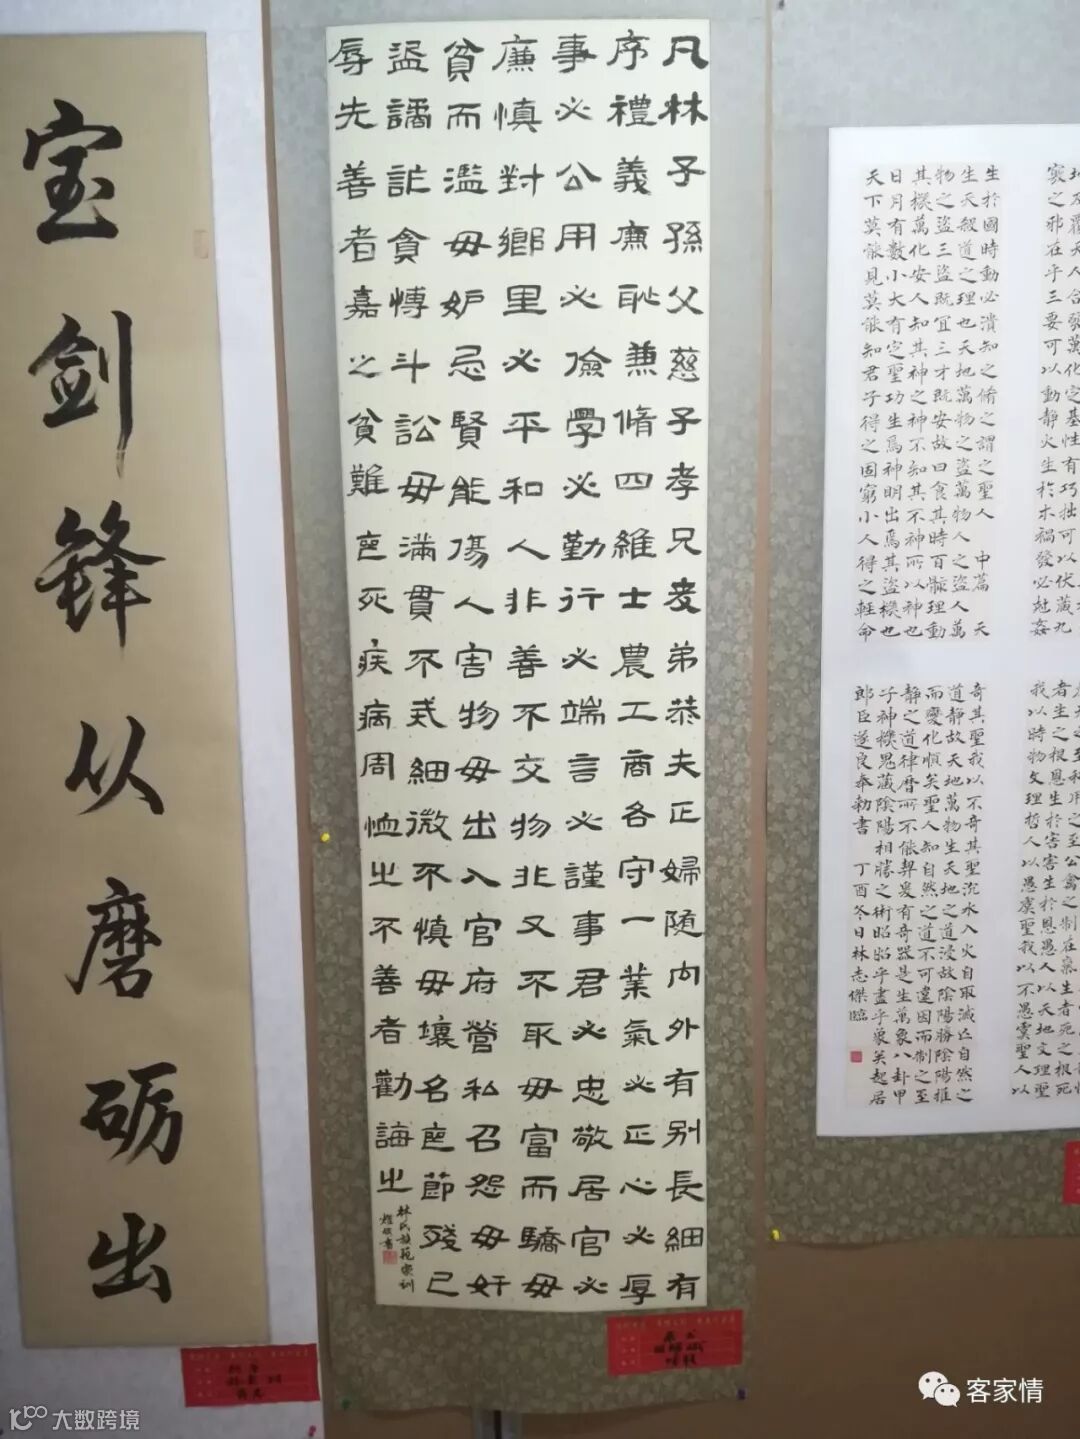 宝剑锋从磨砺出
凡林子孫父慈子孝兄友弟恭夫正婦随内外有别長細有
序禮義廉恥兼脩四維士農工商各守一業氣必正心必厚
事必公用必儉學必勤行必端言必謹事君必忠敬居官必
廉慎對鄉里必平和人非善不交物非义不取毋富而驕毋
貧而濫毋妒忌賢能傷人害物毋出入官府營私召怨毋奸
盜譎詐貪愽斗訟毋滿貫不弍細微不慎毋壞名喪節殘己
辱先善者嘉之貧難喪死疾病周恤之不善者勸誨之
林氏族範家訓
書
覆天人合發萬化定基性有巧拙可以伏藏九
竅之邪在乎三要可以動靜火生於木禍發必尅姦
生於國時動必潰知之脩之謂之聖人 中篇 天
生天殺道之理也天地萬物之盜萬物人之盜人萬
物之盜三盜既宜三才既安故曰食其時百骸理動
其機萬化安人知其神之神不知其不神所以神也
日月有數小大有定聖功生焉神明出焉其盜機也
天下莫能見莫能知君子得之固窮小人得之輕命
者生之根恩生於害害生於恩愚人以天地文理聖
我以時物文理哲人以愚虞聖我以不愚虞聖人以
奇其聖我以不奇其聖沉水入火自取滅亡自然之
道靜故天地萬物生天地之道浸故陰陽勝陰陽推
而變化順矣聖人知自然之道不可違因而制之至
靜之道律曆所不能契爰有奇器是生萬象八卦甲
子神機鬼藏陰陽相勝之術昭昭乎盡乎象矣起居
郎臣遂良奉勅書 丁酉冬日林志傑臨
客家情
大数跨境